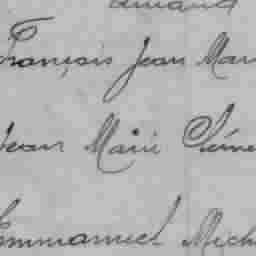 François Jean Mar
Jean Marie Cléme
Emmanuel Mich